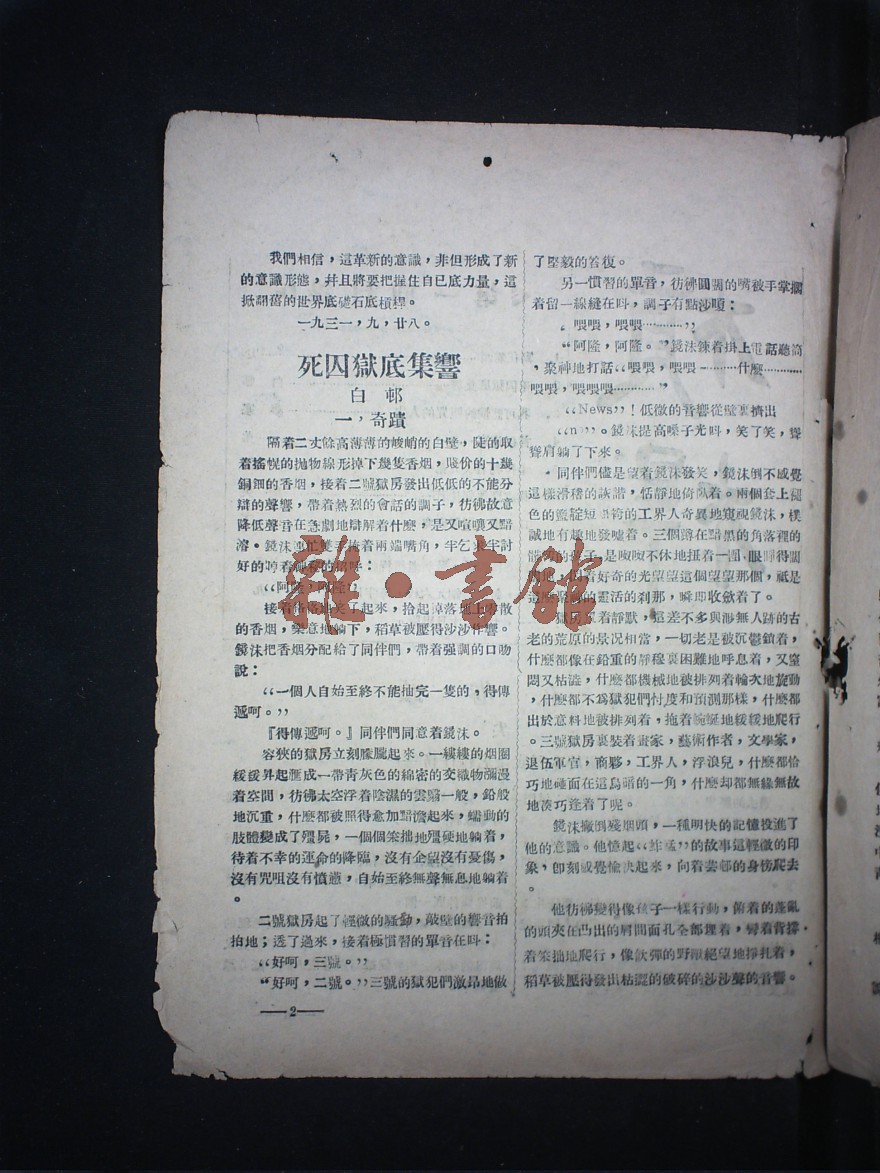 我們相信，這革新的意識，非但形成了新
的意識形態，幷且將要把握住自已底力量，這
掀翻舊的世界底礎石底槓桿。
一九三一，九，廿八。
死囚獄底集響
白邨
一，奇蹟
隔着二丈餘高薄薄的峻峭的白壁，陡的取
着搖幌的抛物線形掉下幾隻香烟，賤价的十幾
銅鈿的香烟，接着二號獄房發出低低的不能分
辯的聲響，帶着熱烈的會話的調子，彷彿故意
降低聲音在急劇地辯解着什麼，是又喧嚷又黯
溶。鏡沫連忙雙手掩着兩端嘴角，半乞求半討
好的
“阿隆，阿隆！，
接着 笑了起來，拾起掉落地上 散
的香烟，樂意地躺下，稻草被壓得沙沙作響。
鏡沫把香烟分配給了同伴們，帶着强調的口吻
說：
“一個人自始至終不能抽完一隻的，得傳
遞呵。”
『得傳遞呵。』同伴們同意着鏡沫。
容狹的獄房立刻朦朧起來。一縷縷的烟圈
緩緩昇起匯成一帶青灰色的綿密的交織物瀰漫
着空間，彷彿太空浮着陰濕的雲靄一般，鉛般
地沉重，什麼都被照得愈加黯澹起來，蠕動的
肢體變成了殭屍，一個個笨拙地殭硬地躺着，
待着不幸的運命的降臨，沒有企望沒有憂傷，
沒有咒咀沒有憤懣，自始至終無聲無息地躺着
。
二號獄房起了輕微的騷動，敲壁的響音拍
拍地；透了過來，接着極慣習的單音在呌：
“好呵，三號。”
“好呵，二號。”三號的獄犯們激昂地做
—2—
了堅毅的答復。
另一慣習的單音，彷彿圓圓的嘴被手掌攔
着留一線縫在呌，調子有點沙嗄：
“喂喂，喂喂…………”
“阿隆，阿隆。”鏡沫鍊着掛上電話聽筒
，聚神地打話“喂喂，喂喂…………什麼…………
喂喂，喂喂喂…………”
“News”！低微的音響從壁裏擠出
“n”。鏡沫提高嗓子光呌，笑了笑，聳
聳肩躺了下來。
同伴們儘是望着鏡沫發笑，鏡沫倒不感覺
這樣滑稽的詼諧，恬靜地倚臥着。兩個套上褪
色的藍靛短 袴的工界人奇異地窺視鏡沫，樸
誠地有趣地發噓着。三個蹲在黯黑的角落裡的
的孩子，是呶呶不休地抵着一團，眼睜得圓
圓地，閃着好奇的光望望這個望望那個，祗是
這麼 的靈活的刹那，瞬即收斂着了。
獄房 着靜默，這差不多與渺無人跡的古
老的荒原的景况相當，一切老是被沉鬱鎮着，
什麼都像在鉛重的靜穆裏困難地呼息着，又窒
悶又枯澁，什麼都機械地被排列着輪次地旋動
，什麼都不爲獄犯們忖度和預測那樣，什麼都
出於意料地被排列着，拖着蜿蜒地緩緩地爬行
。三號獄房裏裝着畫家，藝術作者，文學家，
退伍軍官，商夥，工界人，浮浪兒，什麼都恰
巧地碰面在這烏暗的一角，什麼却都無緣無故
地湊巧逢着了呢。
鏡沫撇倒殘烟頭，一種明快的記憶投進了
他的意識。他憶起“牂 ”的故事這輕微的印
象，卽刻感覺愉快起來，向着雲邨的身傍爬去
。
他彷彿變得像孩子一樣行動，俯着的蓬亂
的頭夾在凸出的肩間面孔全部埋着，彎着背撐
着笨拙地爬行，像飲彈的野獸絕望地掙扎着，
稻草被壓得發出枯澀的破碎的沙沙聲的音響。
雜·書館